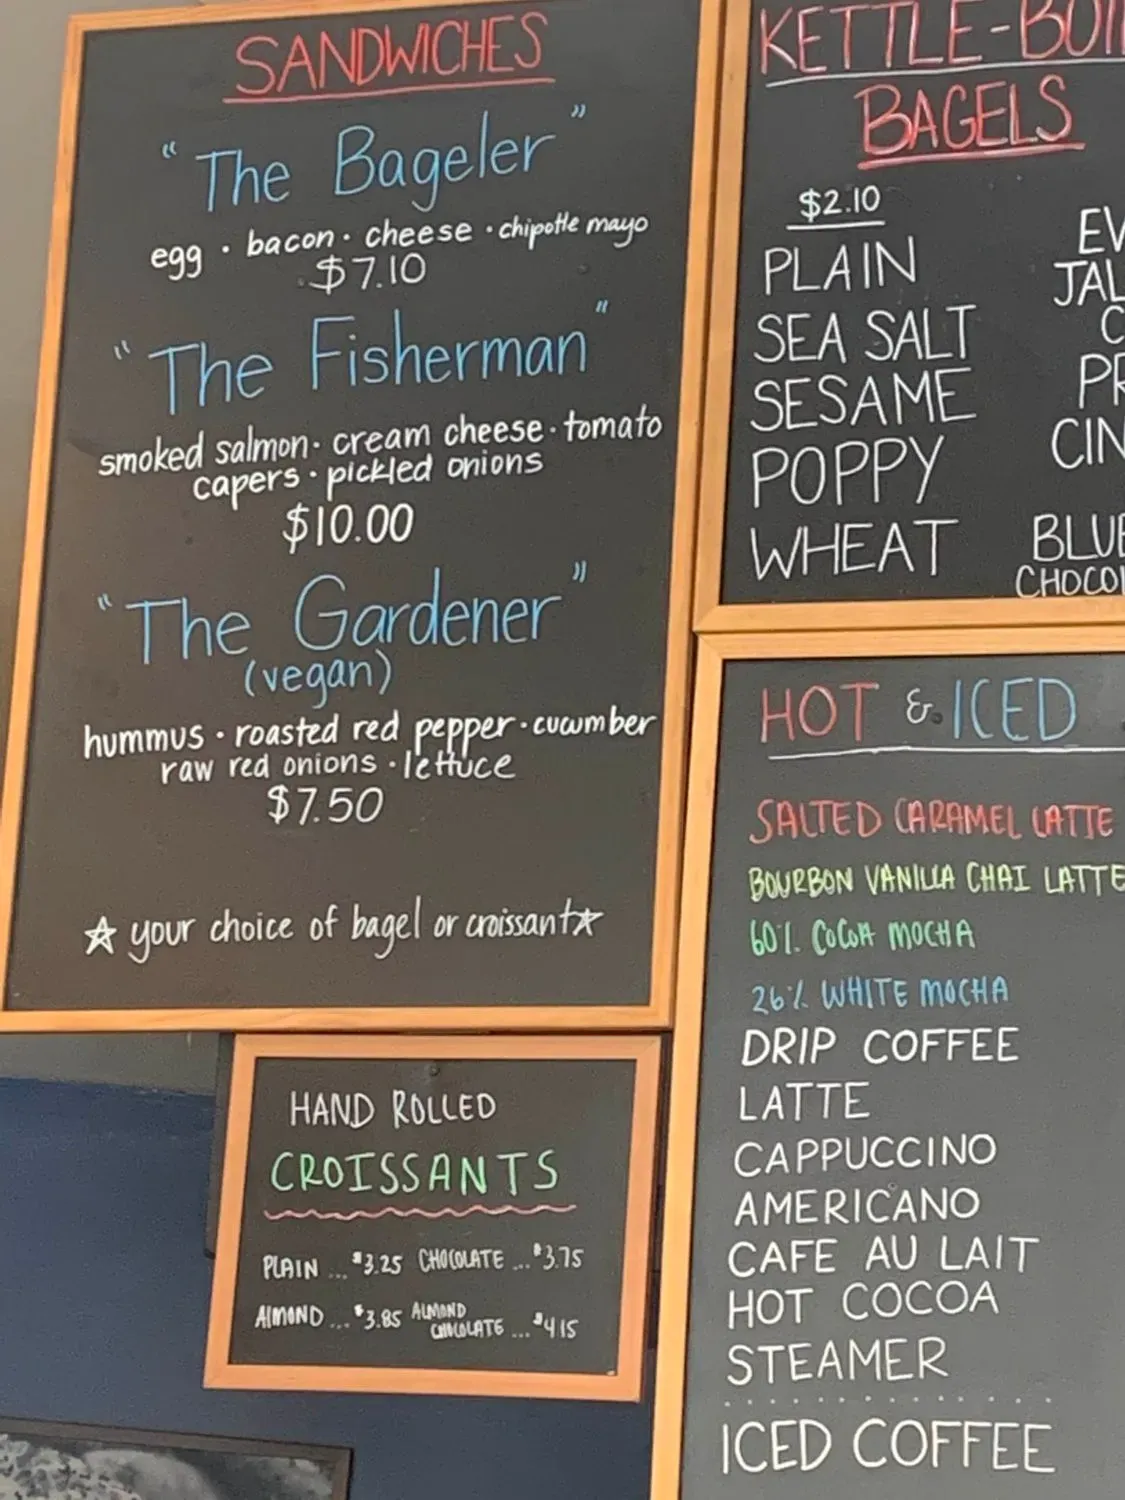 SANDWICHES
"The Bageler"
egg · bacon · cheese · chipotle mayo
$7.10
"The Fisherman"
smoked salmon · cream cheese · tomato
capers · pickled onions
$10.00
"The Gardener"
(vegan)
hummus · roasted red pepper · cucumber
raw red onions · lettuce
$7.50
☆ your choice of bagel or croissant ☆
HAND ROLLED
CROISSANTS
PLAIN ... $3.25 CHOCOLATE ... $3.75
ALMOND ... $3.85 ALMOND
CHOCOLATE ... $4.15
KETTLE-BOI
BAGELS
$2.10
PLAIN
SEA SALT
SESAME
POPPY
WHEAT
EV
JAL
C
PR
CIN
BLUE
CHOCO
HOT & ICED
SALTED CARAMEL LATTE
BOURBON VANILLA CHAI LATTE
60% COCOA MOCHA
26% WHITE MOCHA
DRIP COFFEE
LATTE
CAPPUCCINO
AMERICANO
CAFE AU LAIT
HOT COCOA
STEAMER
ICED COFFEE